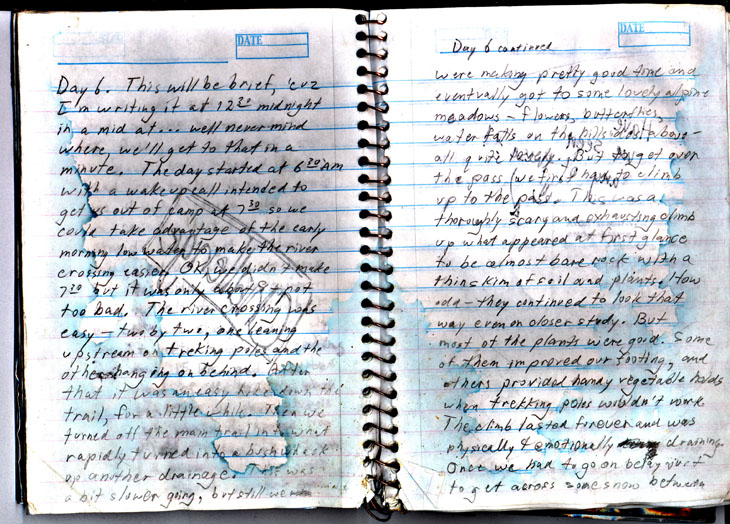 DATE
Day 6. This will be brief, 'cuz
I'm writing it at 12³⁰ midnight
in a mid at... well never mind
where, we'll get to that in a
minute. The day started at 6³⁰ AM
with a wakeup call intended to
get us out of camp at 7³⁰ so we
could take advantage of the early
morning low water to make the river
crossing easier. OK, we didn't make
7³⁰ but it was only about 8 + not
too bad. The river crossing was
easy – two by two, one leaning
upstream on treking poles and the
other hanging on behind. After
that it was an easy hike down the
trail, for a little while. Then we
turned off the main trail into what
rapidly turned into a bushwhack
up another drainage. That was
a bit slower going, but still we
DATE
Day 6 continued
were making pretty good time and
eventually got to some lovely alpine
meadows – flowers, butterflies,
water falls on the hillsides above –
all quite lovely. But to get over
the pass we first have to climb
up to the pass. This was a
thoroughly scary and exhausting climb
up what appeared at first glance
to be almost bare rock with a
thin skim of soil and plants. How
odd – they continued to look that
way even on closer study. But
most of the plants were good. Some
of them improved our footing, and
others provided handy vegetable holds
when trekking poles wouldn't work.
The climb lasted forever and was
physically & emotionally draining.
Once we had to go on belay just
to get across some snow between